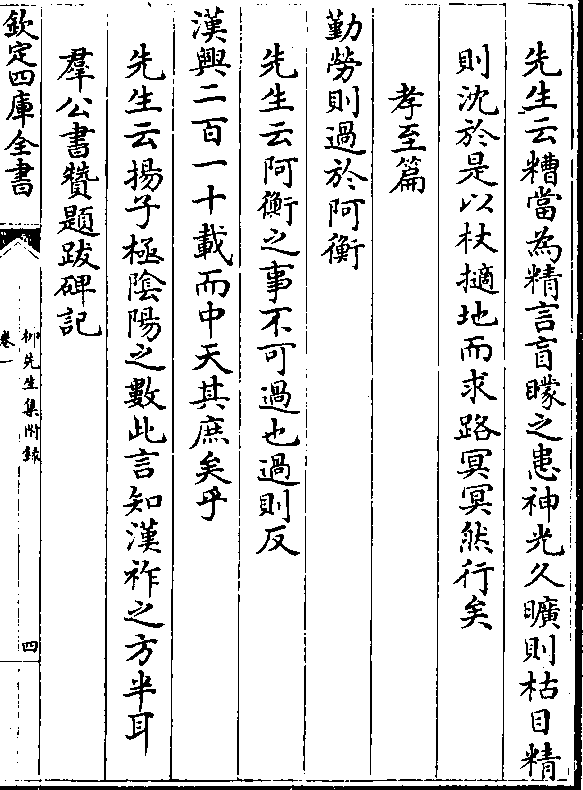 先生云糟當為精言盲矇之患神光久曠則枯目精
則沈於是以杖擿地而求路冥冥然行矣
孝至篇
勤勞則過於阿衡
先生云阿衡之事不可過也過則反
漢興二百一十載而中天其庶矣乎
先生云揚子極陰陽之數此言知漢祚之方半耳
羣公書贊題跋碑記
欽定四庫全書
柳先生集附録
卷一
四